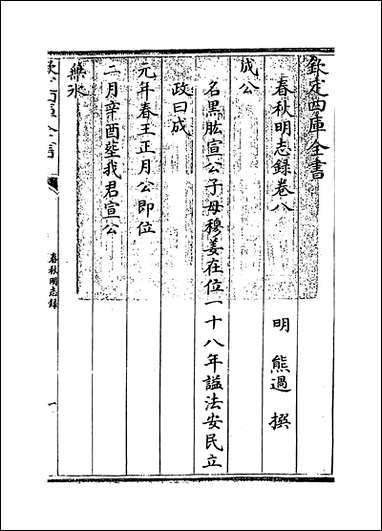 欽定四庫全書
春秋明志錄卷八
明 熊過 撰
成公
名黑肱宣公子母穆姜在位一十八年諡法安民立
政曰成
元年春王正月公即位
二月辛酉葬我君宣公
無冰
春秋明志錄
一